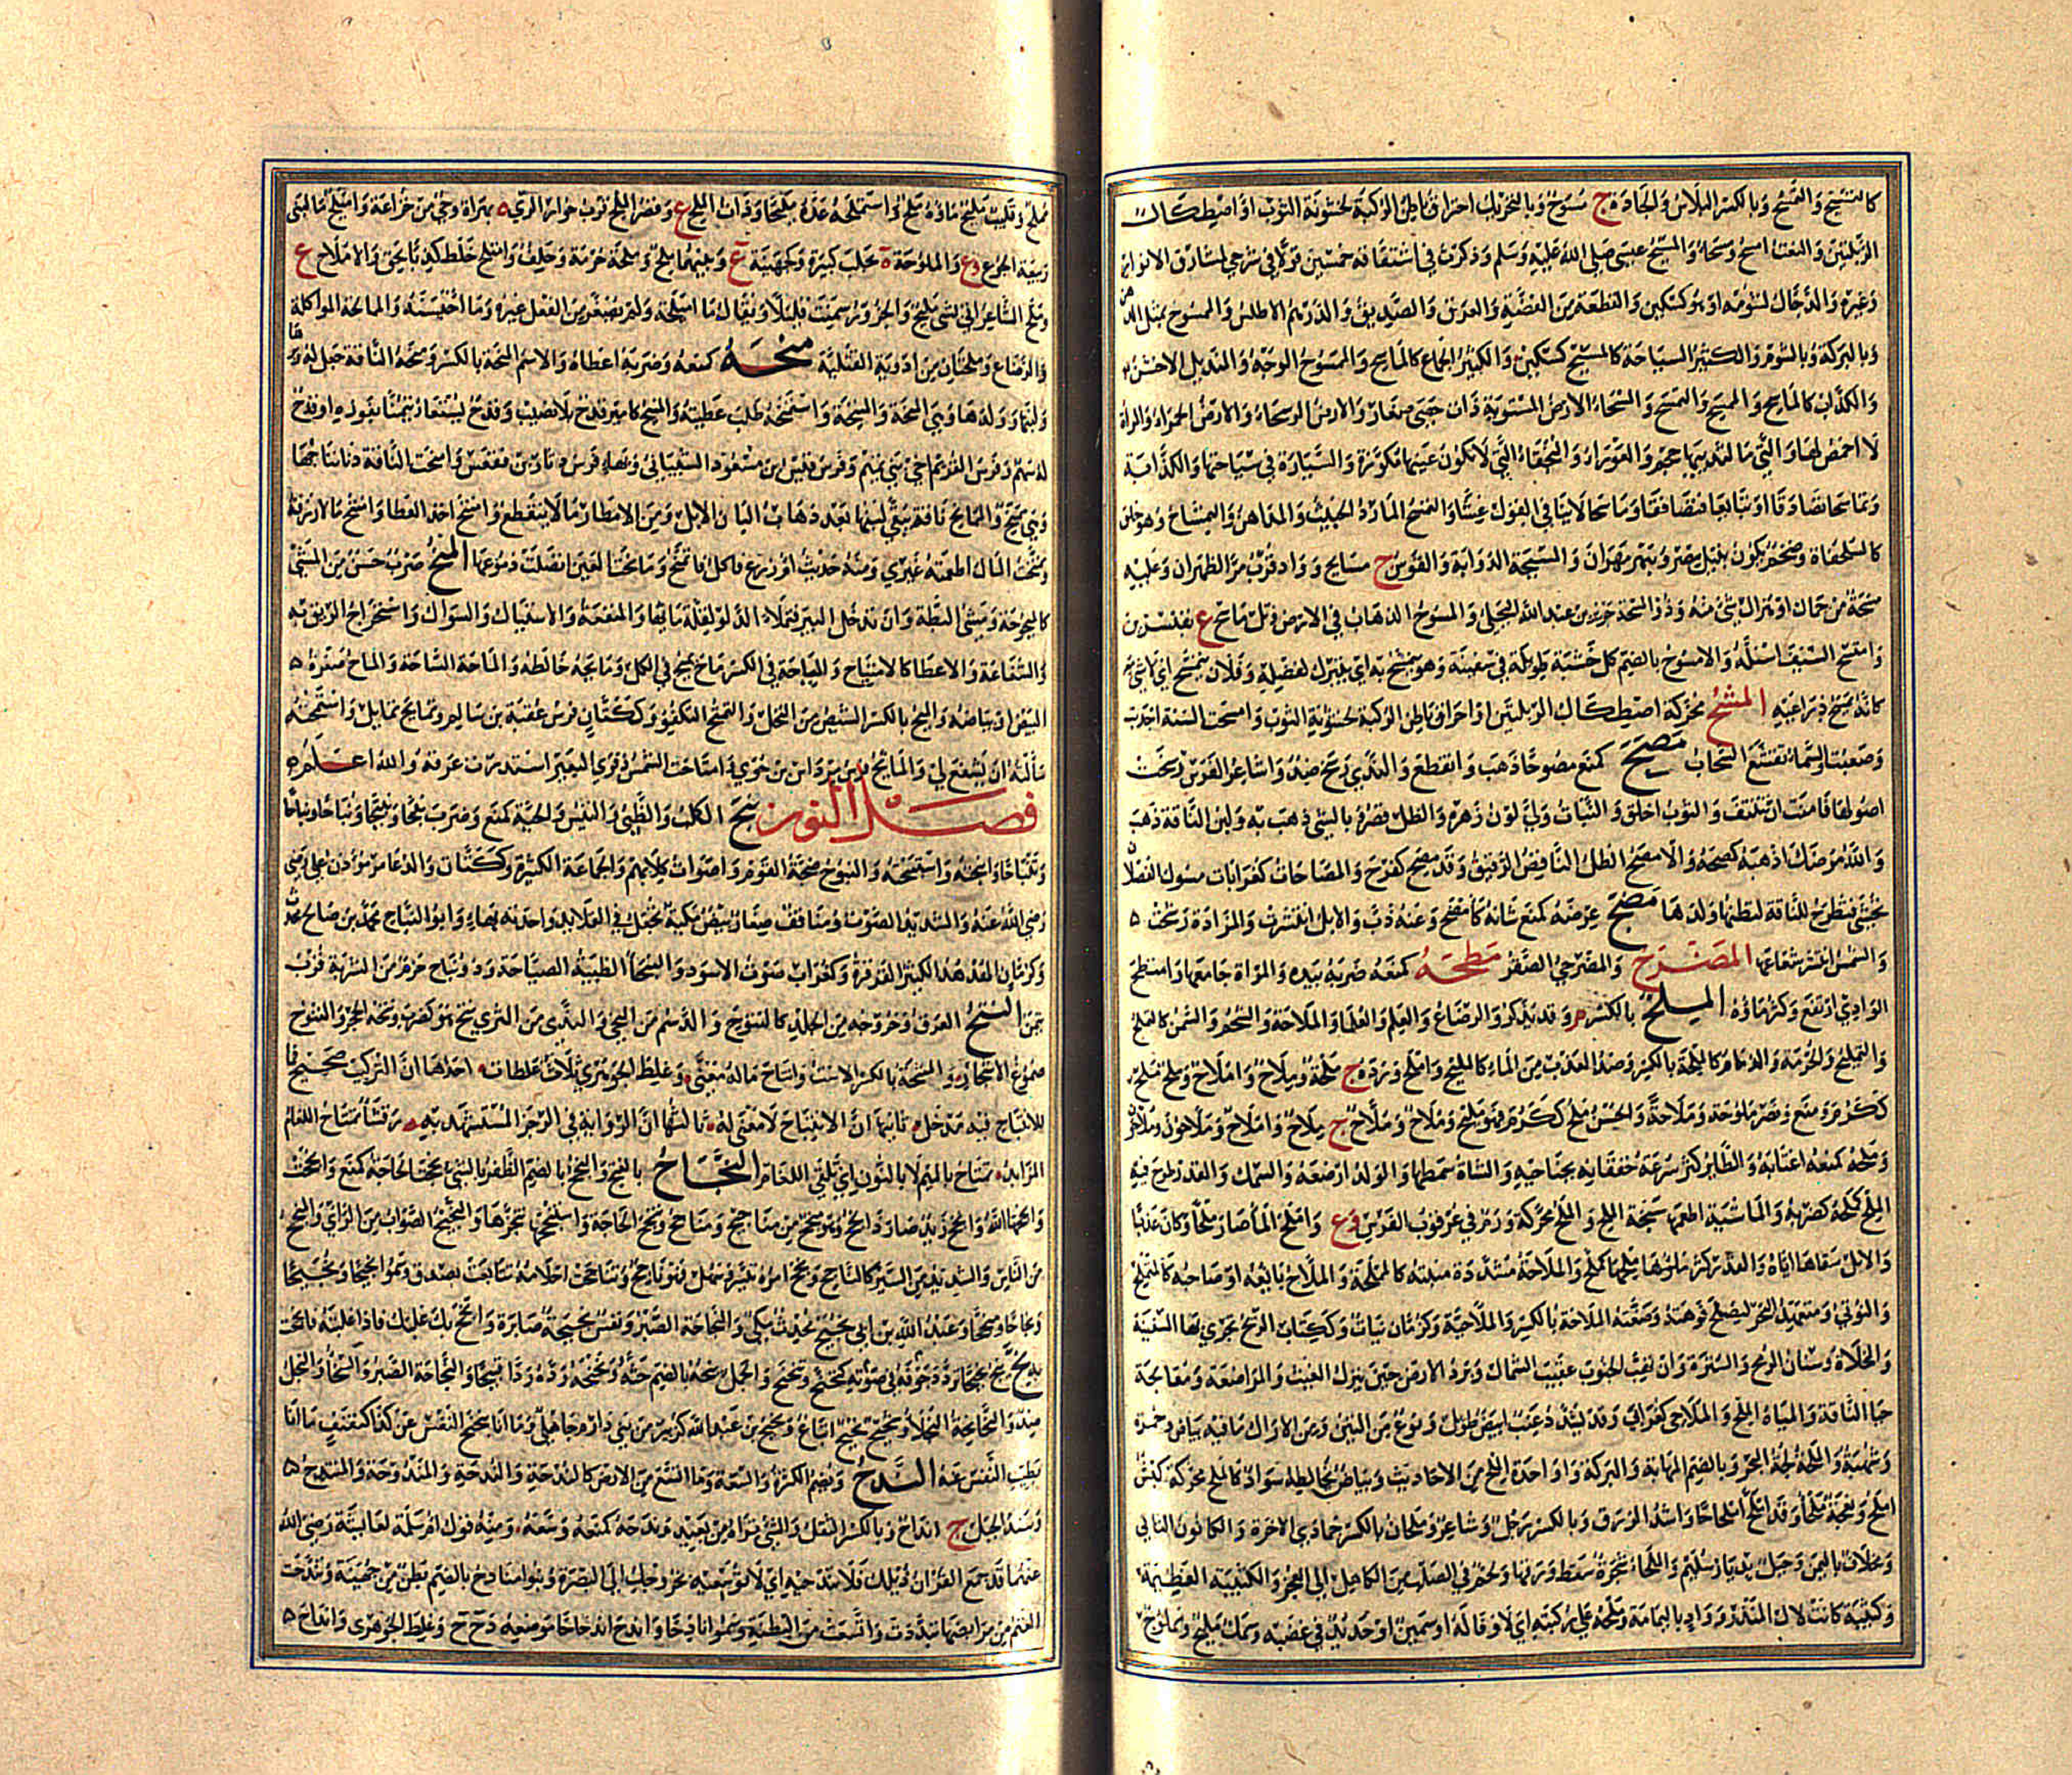 كالتمسيح والتمسح وبالكسر البلاس والجادة ج مسوح وبالتحريك احتراق باطن الركبة لخشونة الثوب او اصطكاك
الربلتين والنعت امسح ومسحاء والمسيح عيسى صلى الله عليه وسلم وذكرت في اشتقاقه خمسين قولا في شرحي لمشارق الانوار
وغيره والدجال لشومه او هو كسكين والقطعة من الفضة والعرق والصديق والدرهم الاطلس والممسوح بمثل الدهن
وبالبركة وبالشوم والكثير السياحة كالمسيح كسكين والكثير الجماع كالماسح والممسوح الوجه والمنديل الاخشن
والكذاب كالماسح والممسح والتمسح والمسحاء الارض المستوية ذات حصى صغار والارض الرسحاء والارض الحمراء والمراة
لا اخمص لها والتي ما لثدييها حجم والعوراء والبخقاء التي لا تكون عينها ملوزة والسيارة في سياحتها والكذابة
وتماسحا تصادقا او تبايعا فتصافقا وماسحا لاينا في القول غشا والتمسح المارد الخبيث والمداهن والتمساح وهو خلق
كالسلحفاة ضخم يكون بنيل مصر وبنهر مهران والمسيحة الذوابة والقوس ج مسايح وواد قرب مر الظهران وعليه
مسحة من جمال او هزال شئ منه وذو المسحة جرير بن عبد الله البجلي والمسوح الذهاب في الارض وتل ماسح ع بقنسرين
وامتسح السيف استله والامسوح بالضم كل خشبة طويلة في سفينة وهو يتمسح به اي يتبرك لفضله وفلان يتمسح اي لا شئ معه
كانه يمسح ذراعيه المشح محركة اصطكاك الربلتين او احتراق باطن الركبة لخشونة الثوب وامشحت السنة اجدبت
وصعبت والسماء تقشع السحاب مصح كمنع مصوحا ذهب وانقطع والثدي رسخ ضد واشاعر الفرس رسخت
اصولها فامنت ان تنتف والثوب اخلق والنبات ولى لون زهره والظل قصر وبالشئ ذهب به ولبن الناقة ذهب
والله مرضك اذهبه كمصحه والامصح الظل الناقص الرقيق وقد مصح كفرح والمصاحات كغرابات مسوك الفصلان
تحشى فتطرح للناقة لتظنها ولدها مضح عرضه كمنع شانه كامضح وعنه ذب والابل انتشرت والمزادة رشحت
والشمس انتشر شعاعها المضرح والمضرحي الصقر مطحه كمنعه ضربه بيده والمراة جامعها وامتطح
الوادي ارتفع وكثر ماؤه الملح بالكسر م وقد يذكر والرضاع والعلم والعلماء والملاحة والشحم والسمن كالتملح
والتمليح والحرمة والذمام كالملحة بالكسر وضد العذب من الماء كالمليح واملح ورده ج ملحة وملاح واملاح وملح فملح
ككرم ومنع ونصر ملوحة وملاحة والحسن ملح ككرم فهو مليح وملاح وملاح ج ملاح واملاح وملاحون وملاحون
وملحه كمنعه اغتابه والطاير كثر سرعة خفقانه بجناحيه والشاة سمطها والولد ارضعه والسمك والقدر طرح فيه
الملح كملحه كضربه والماشية اطعمها سبخة الملح والملح محركة ورم في عرقوب الفرس وع واملح الماء صار ملحا وكان عذبا
والابل سقاها اياه والقدر كثر ملحها كملحها كملح والملاحة مشددة منبته كالمملحة والملاح بايعه او صاحبه كالمتملح
والنوتي ومتعهد النهر ليصلح فوهته وصنعته الملاحة بالكسر والملاحية وكرمان نبات وككتاب الريح تجري بها السفينة
والمخلاة وسنان الرمح والسترة وان تهب الجنوب عقيب الشمال وبرد الارض حين ينزل الغيث والمراضعة ومعالجة
حيا الناقة والمياه الملح والملاحي كغرابي وقد يشدد عنب ابيض طويل ونوع من التين ومن الاراك ما فيه بياض وحمرة
وشهبة والملحة لجة البحر وبالضم المهابة والبركة وواحدة الملح من الاحاديث وبياض يخالطه سواد كالملح محركة كبش
املح ونعجة ملحاء وقد املح املحاحا واشد الزرق وبالكسر رجل وشاعر وملحان بالكسر جمادى الاخرة والكانون الثاني
ومخلاف باليمن وجبل بديار سليم والملحاء شجرة سقط ورقها ولحم في الصلب من الكاهل الى العجز والكتيبة العظيمة
وكتيبة كانت لال المنذر وواد باليمامة وملحه على ركبته اي لا وفا له او سمين او حديد في غضبه وسمك مليح ومملوح
مملح وقليب مليح ماؤه ملح واستملحه عده مليحا وذات الملح ع وقصر الملح قرب خوار الري ه بهراة وحي من خزاعة واميلح ماء لبني
ربيعة الجوع وع والملوحة ة بحلب كبيرة وكجهينة ع وبينهما ملح وملحة حرمة وحلف وامتلح خلط كذبا بحق والاملاح ع
وملح الشاعر اتى بشئ مليح والجزور سمنت قليلا ويقال ما اميلحه ولم يصغر من الفعل غيره وما احيسنه والممالحة المواكلة
والرضاع وملحتان من اودية القبلية منحه كمنعه وضربه اعطاه والاسم المنحة بالكسر ومنحه الناقة جعل له وبرها
ولبنها وولدها وهي المنحة والمنيحة واستمنحه طلب عطيته والمنيح كامير قدح بلا نصيب وقدح يستعار تيمنا بفوزه او قدح
له سهم وفرس القريم اخي بني تيم وفرس قيس بن مسعود الشيباني وبهاء فرس دثار بن فقعس وامنحت الناقة دنا نتاجها
وهي ممنح والممانح ناقة يبقى لبنها بعد ذهاب البان الابل ومن الامطار ما لا ينقطع وامتنح اخذ العطا وامتنح مالا رزقه
وتمنحت المال اطعمته غيري ومنه حديث ام زرع فاكل فاتمنح ومانحت العين اتصلت دموعها الميح ضرب حسن من المشي
كالميحوحة ومشي البطة وان تدخل البير فتملا الدلو لقلة مايها والمنفعة والاستياك والسواك واستخراج الريق به
والشفاعة والاعطا كالامتياح والمياحة في الكسر ماح يميح في الكل ومايحه خالطه والماحة الساحة والماح صفرة
البيض او بياضه والميح بالكسر الشيص من النخل والتميح التكفؤ وككتان فرس عقبة بن سالم وتمايح تمايل واستمحته
سالته ان يشفع لي والمايح فرس مرداس بن حوي وامتاحت الشمس ذفرى البعير استدرت عرقه والله اعلم
فصل النون نبح الكلب والظبي والتيس والحية كمنع وضرب نبحا ونبيحا ونباحا ونباحا
وتنباحا وانبحته واستنبحته والنبوح ضجة القوم واصوات كلابهم والجماعة الكثيرة وككتان والد عامر موذن علي
رضي الله عنه والشديد الصوت ومناقف صغار بيض مكية تجعل في القلايد واحدته بهاء وابو النباح محمد بن صالح محدث
وكرمان الهدهد الكبير القرقرة وكغراب صوت الاسود والنبحا الظبية الصياحة وذو نباح حزم من الشربة قرب
تيمن النتح العرق وخروجه من الجلد كالنتوح والدسم من النحي والندى من الثرى نتح هو كضرب ونتحه الحر والنتوح
صموغ الاشجار والمنتحة بالكسر الاست وانتاح ماله معنى وغلط الجوهري ثلاث غلطات احداها ان التركيب صحيح فما
للانتياح فيه مدخل ثانيها ان الانتياح لا معنى له ثالثها ان الرواية في الرجز المستشهد به رقشاء تمتاح اللغام
المزبدا تمتاح بالميم لا بالنون اي تلقي اللغام النجاح بالفتح والنجح بالضم الظفر بالشئ نجحت الحاجة كمنع وانجحت
وانجحها الله وانجح زيد صار ذا نجح وهو منجح من مناجح ومناجيح وتنجح الحاجة واستنجحها تنجزها والنجيح الصواب من الراي والمنجح
من الناس والشديد من السير كالناجح ونجح امره تيسر وسهل فهو ناجح وتناجحت احلامه تتابعت بصدق وسموا نجيحا ونجيحا
ونجاحا ومنجحا وعبد الله بن ابي نجيح محدث مكي والنجاحة الصبر ونفس نجيحة صابرة وانجح بك عليك فاذا غلبته فانجحت
به نح ينح نحيحا تردد صوته في جوفه كنحنح وتنحنح والجمل ينحه بالضم حثه ونحنحه رده ردا قبيحا والنحاحة الصبر والسخا والبخل
ضد والنحانحة البخلا وشحيح نحيح اتباع ونحيح بن عبد الله كزبير من بني دارم جاهلي وما انا بنحنح النفس عن كذا كنفنف ما انا
بطيب النفس عنه الندح ويضم الكثرة والسعة وما اتسع من الارض كالندحة والندحة والمندوحة والمنتدح
وسند الجبل ج انداح وبالكسر الثقل والشئ تراه من بعيد وندحه كمنعه وسعه ومنه قول ام سلمة لعايشة رضي الله
عنهما قد جمع القران ذيلك فلا تندحيه اي لا توسعيه بخروجك الى البصرة وبنو منادح بالضم بطن من جهينة وتندحت
الغنم من مرابضها تبددت واتسعت من البطنة وسموا نادحا واندح اندحاحا موضعه د ح ح وغلط الجوهري وانداح